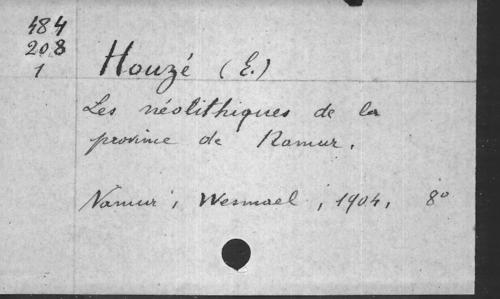 484
208
1
Houzé (E.)
Les néolithiques de la
province de Namur.
Namur, Wesmael, 1904, 8°